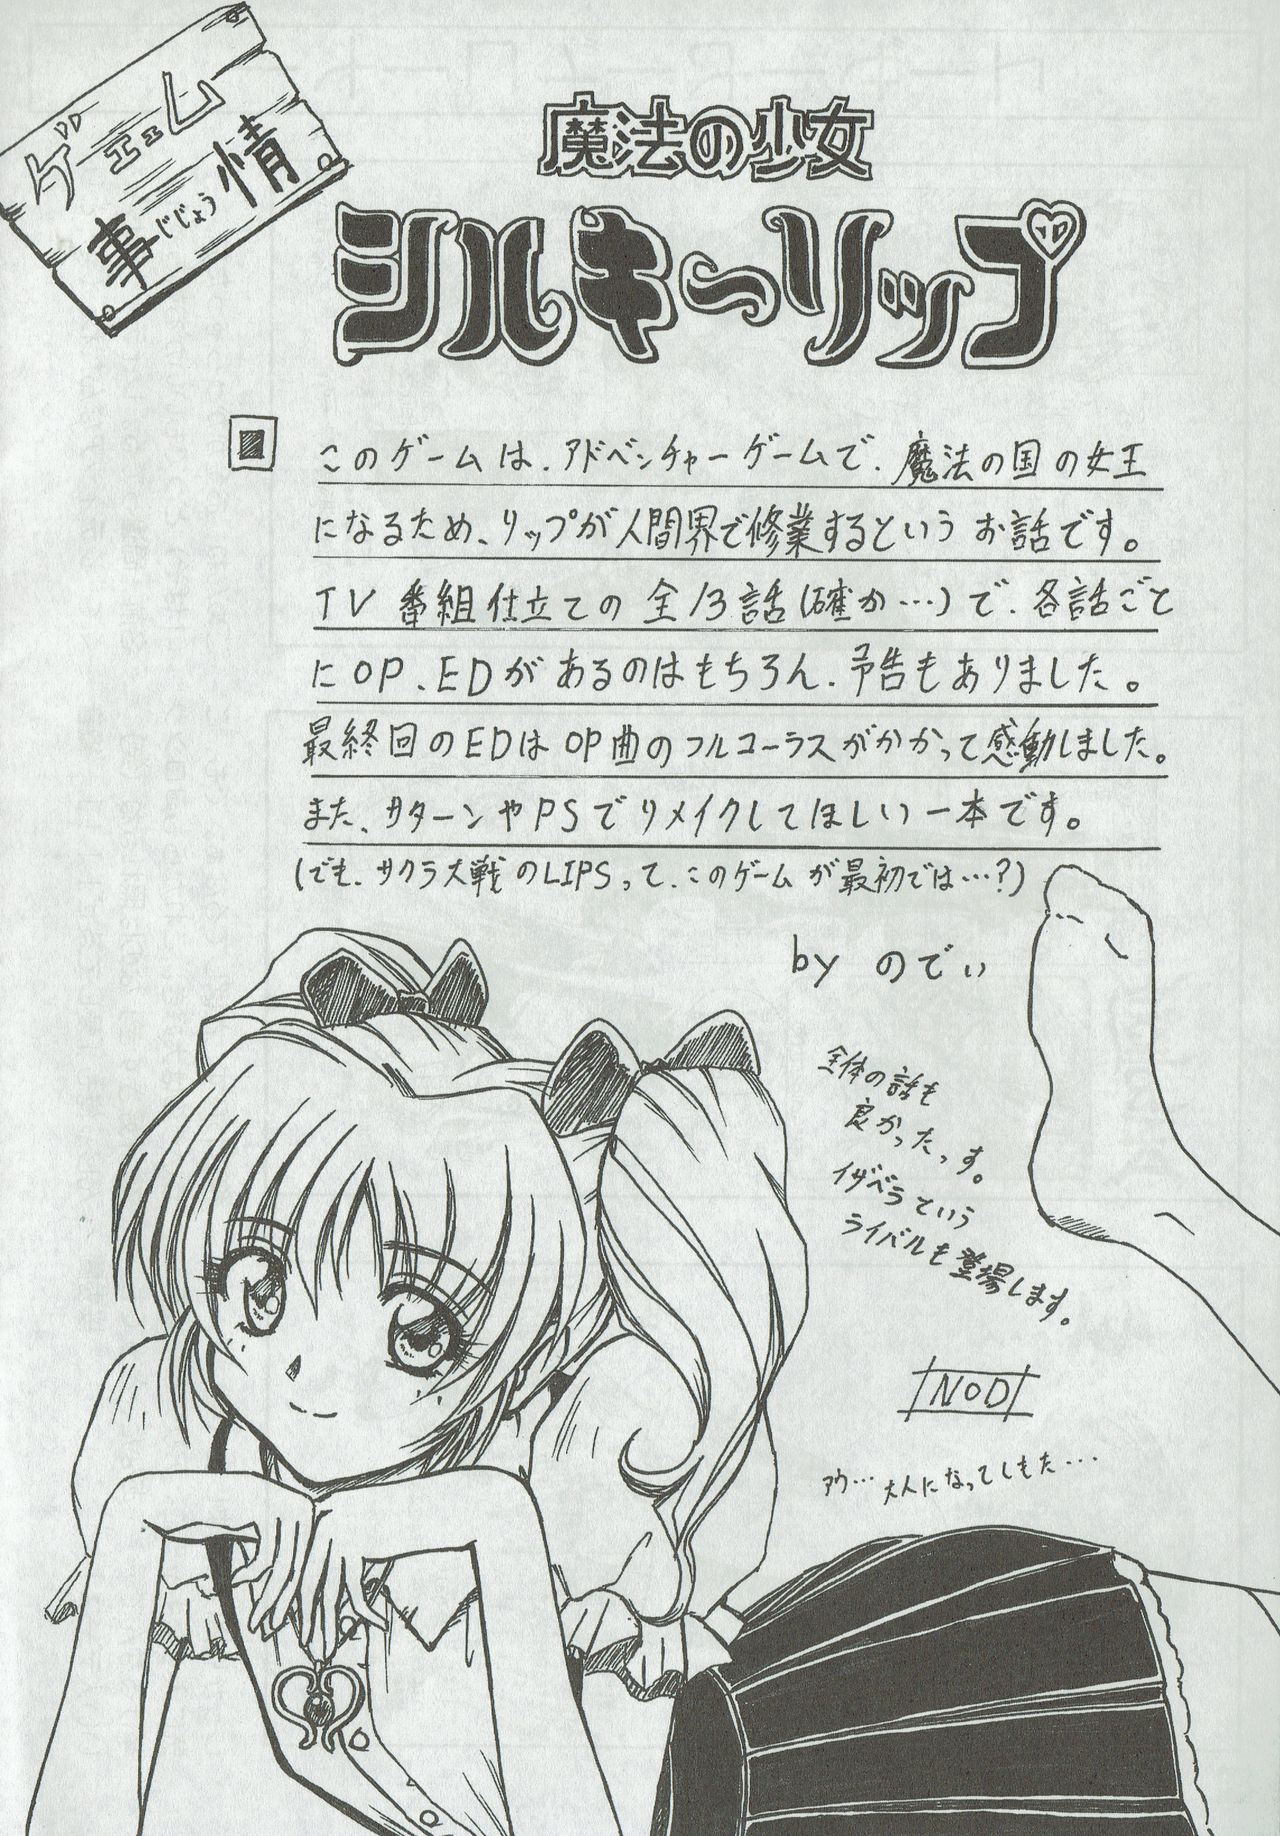 ゲェエム
事じじょう情
魔法の少女
シルキーリップ
このゲームは、アドベンチャーゲームで、魔法の国の女王
になるため、リップが人間界で修業するというお話です。
TV番組仕立ての全13話(確か…)で、各話ごと
にOP、EDがあるのはもちろん、予告もありました。
最終回のEDはOP曲のフルコーラスがかかって感動しました。
また、サターンやPSでリメイクしてほしい一本です。
(でも、サクラ大戦のLIPSって、このゲームが最初では…?)
by のでぃ
全体の話も
良かったっす。
イザベラという
ライバルも登場します。
NOD
アウ… 大人になってしもた…